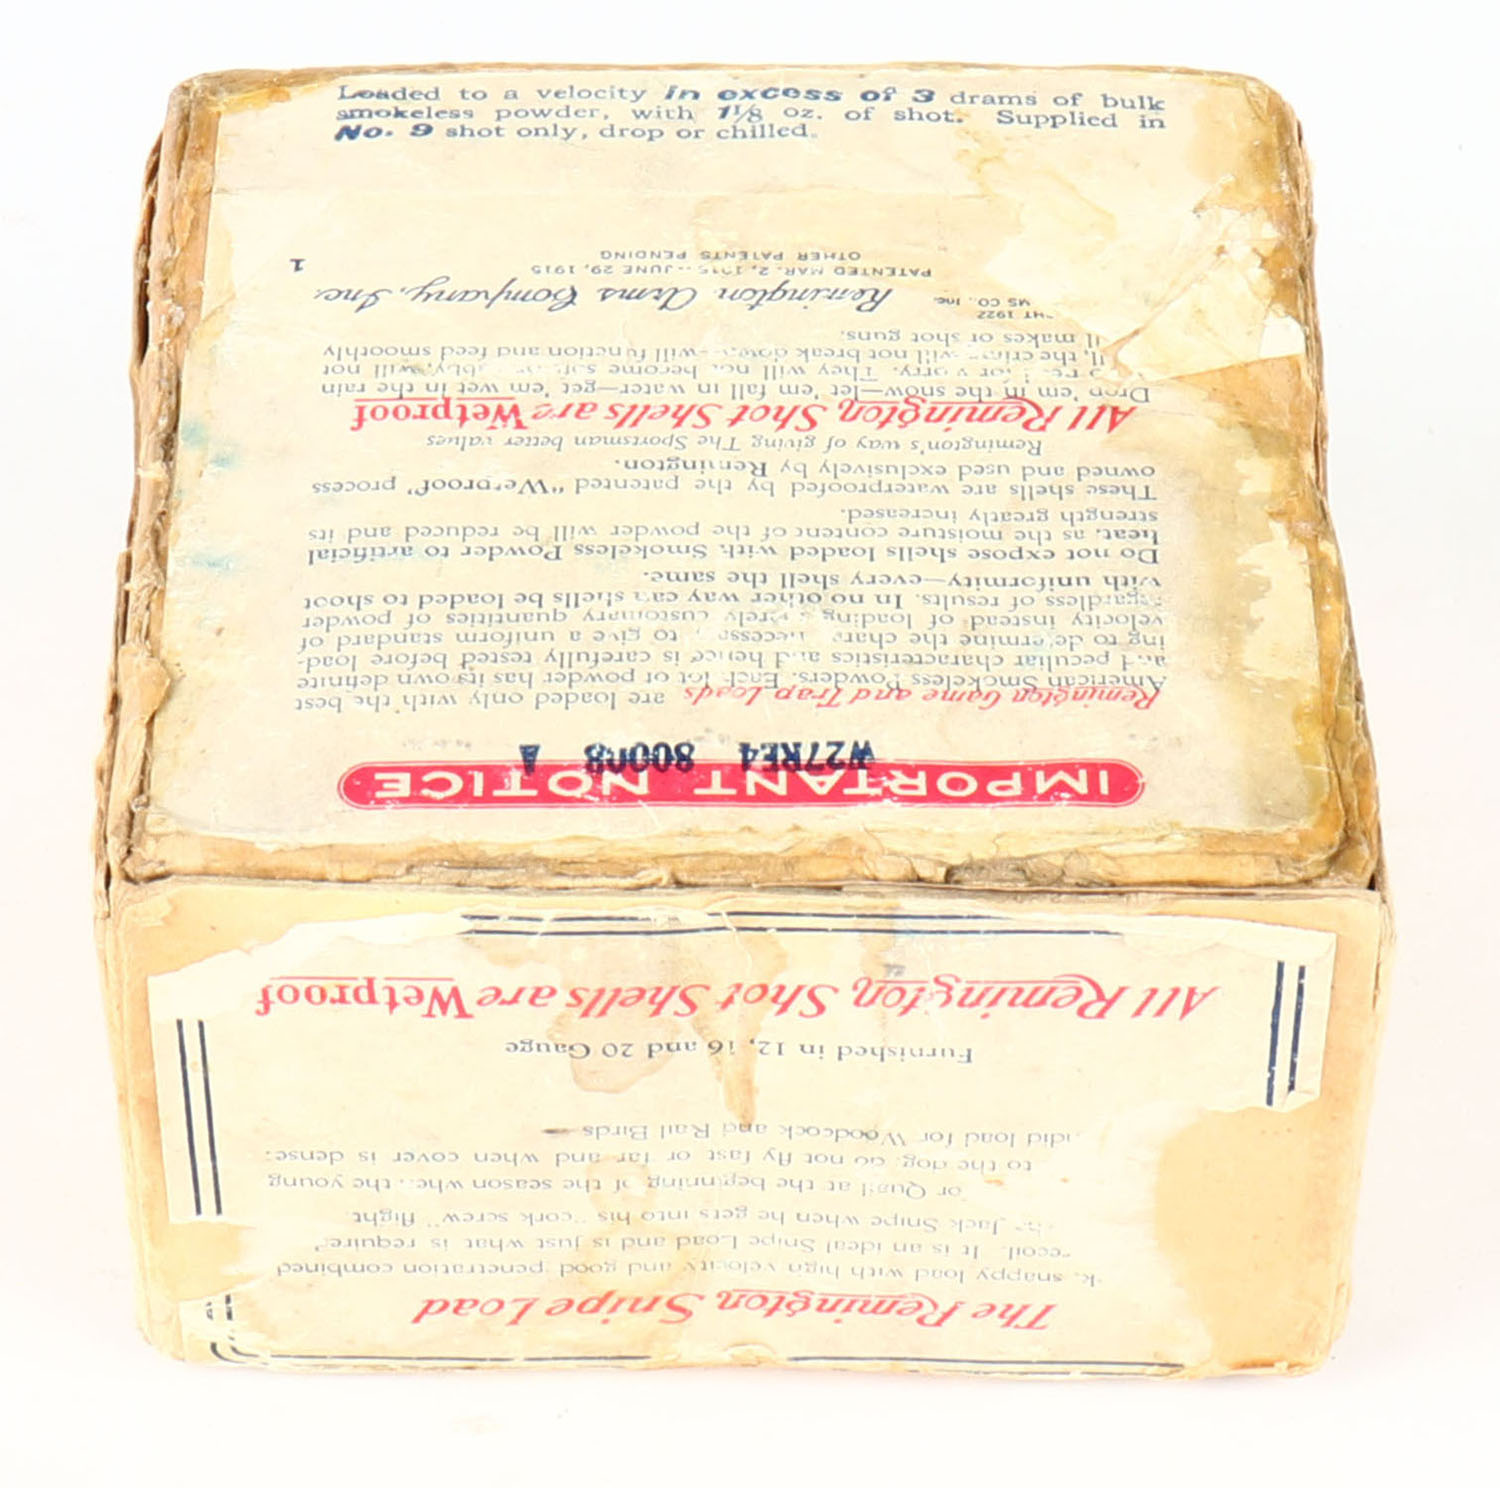 Loaded to a velocity in excess of 3 drams of bulk
smokeless powder, with 1 1/8 oz. of shot. Supplied in
No. 9 shot only, drop or chilled.
IMPORTANT NOTICE
W27RE4 80008 A
Remington Game and Trap Loads are loaded only with the best
American Smokeless Powders. Each lot of powder has its own definite
and peculiar characteristics and hence is carefully tested before load-
ing to determine the charge necessary to give a uniform standard of
velocity instead of loading merely customary quantities of powder
regardless of results. In no other way can shells be loaded to shoot
with uniformity—every shell the same.
Do not expose shells loaded with Smokeless Powder to artificial
heat, as the moisture content of the powder will be reduced and its
strength greatly increased.
These shells are waterproofed by the patented "Wetproof" process
owned and used exclusively by Remington.
Remington's way of giving The Sportsman better values
All Remington Shot Shells are Wetproof
Drop 'em in the snow—let 'em fall in water—get 'em wet in the rain
worry. They will not become soft or wabbly, will not
the crimp will not break down—will function and feed smoothly
makes of shot guns.
HT 1922
MS CO. Inc.
Remington Arms Company, Inc.
PATENTED MAR. 2, 1915 -- JUNE 29, 1915
OTHER PATENTS PENDING
1
The Remington Snipe Load
snappy load with high velocity and good penetration combined
recoil. It is an ideal Snipe Load and is just what is required
Jack Snipe when he gets into his "cork screw" flight
or Quail at the beginning of the season when the young
to the dog, do not fly fast or far and when cover is dense;
did load for Woodcock and Rail Birds
Furnished in 12, 16 and 20 Gauge
All Remington Shot Shells are Wetproof